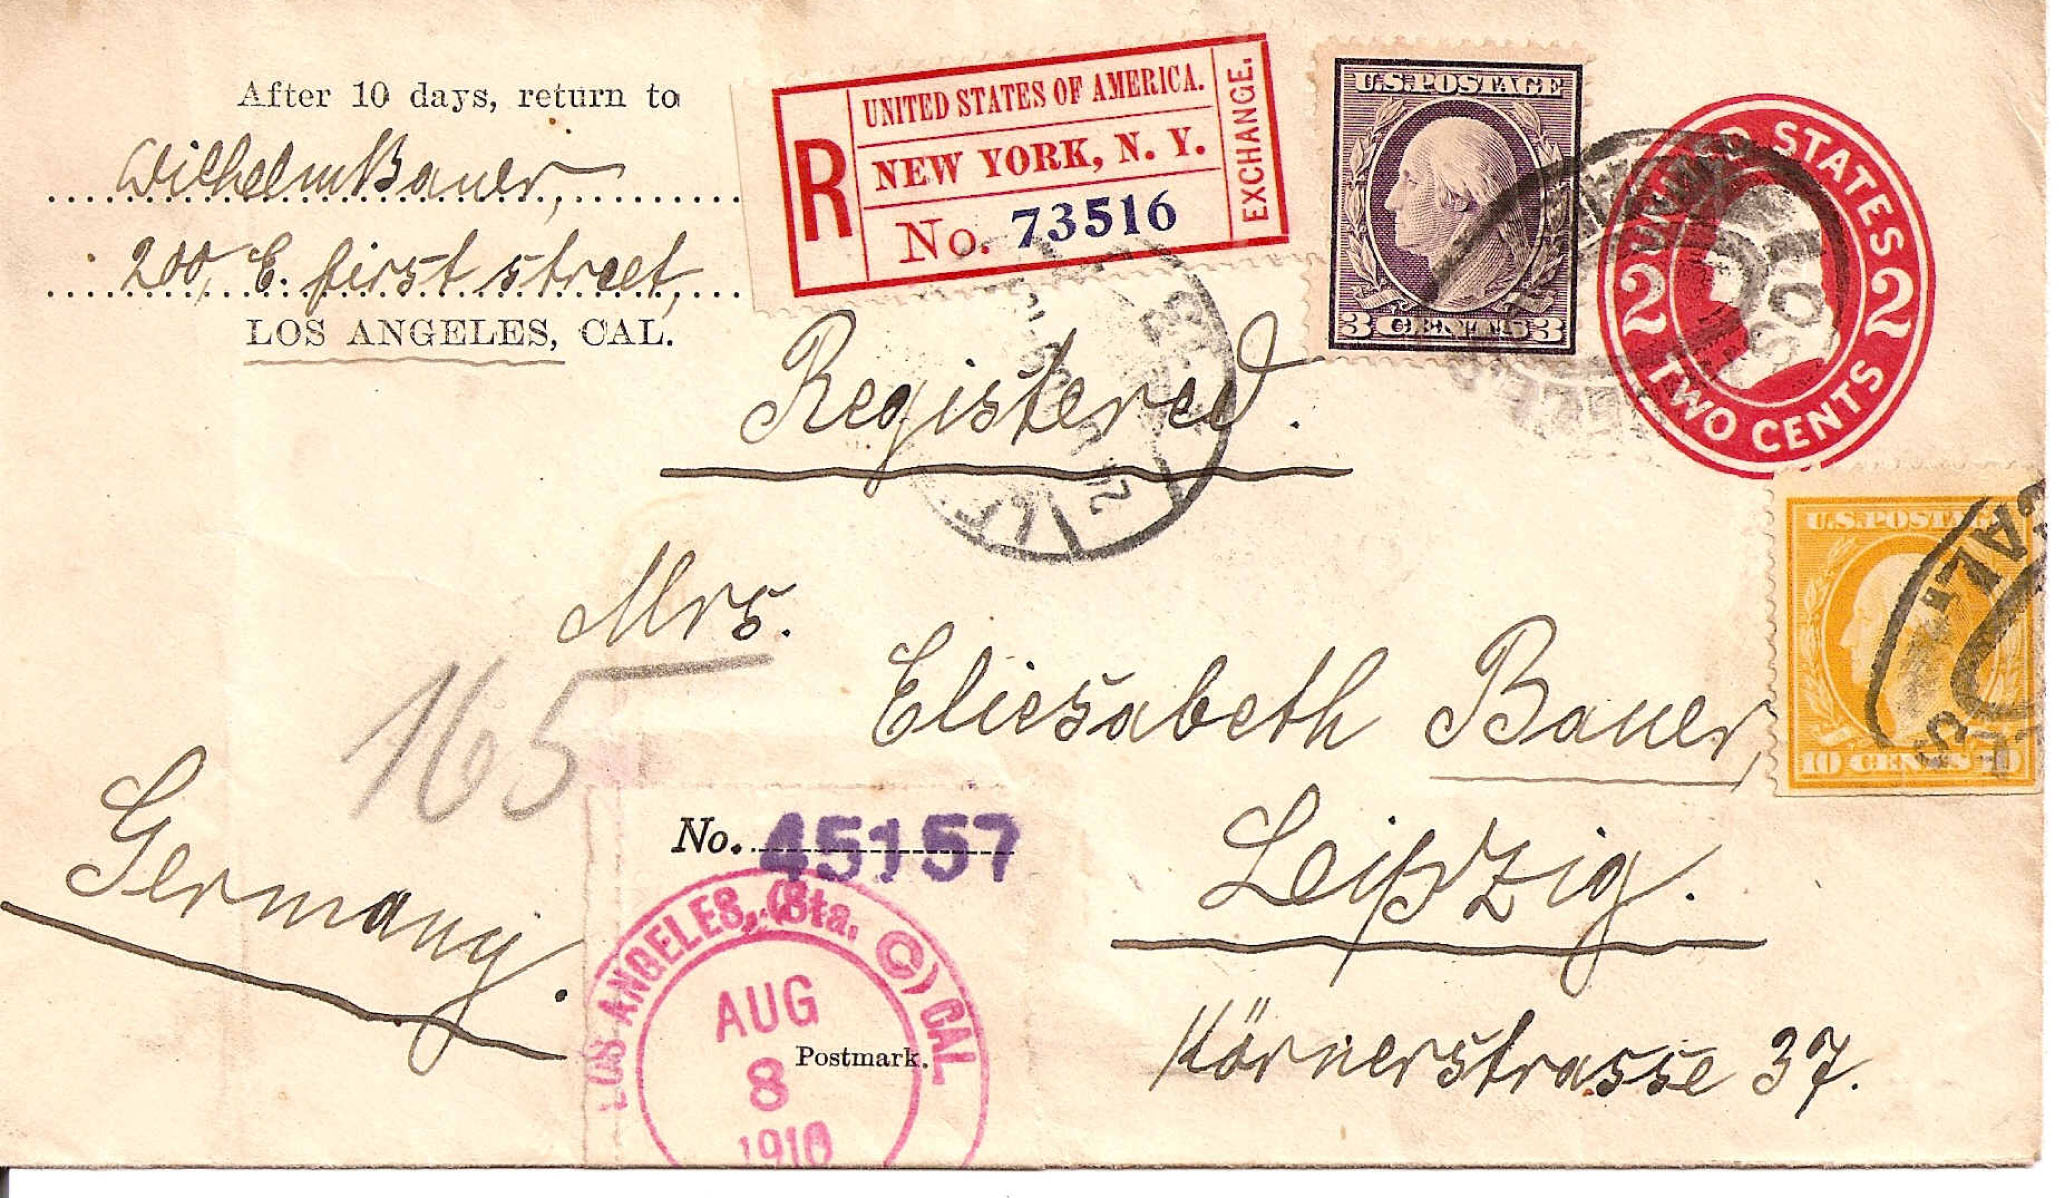 After 10 days, return to
Wilhelm Bauer,
200, E. first street,
LOS ANGELES, CAL.
R
UNITED STATES OF AMERICA.
NEW YORK, N. Y.
No. 73516
EXCHANGE.
U.S. POSTAGE
3 CENTS 3
UNITED STATES
2 2
TWO CENTS
Registered.
U.S. POSTAGE
10 CENTS 10
Mrs.
Eliesabeth Bauer,
165
Leipzig.
Germany.
Körnerstrasse 37.
No. 45157
LOS ANGELES, (Sta. C) CAL
AUG
8
1910
Postmark.